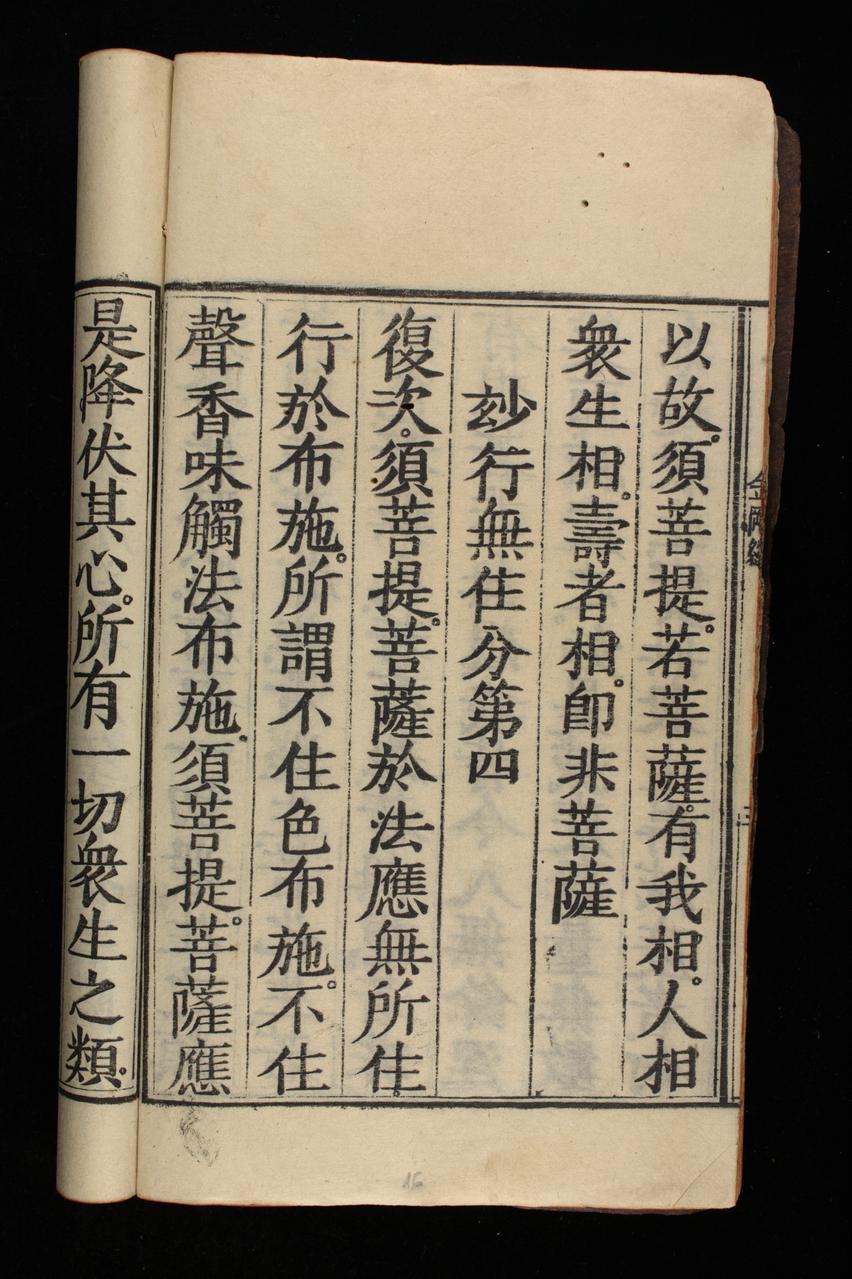 以故。須菩提。若菩薩。有我相。人相
衆生相。壽者相。卽非菩薩
玅行無住分第四
復次。須菩提。菩薩於法應無所住。
行於布施。所謂不住色布施。不住
聲香味觸法布施。須菩提。菩薩應
是降伏其心。所有一切衆生之類。
16